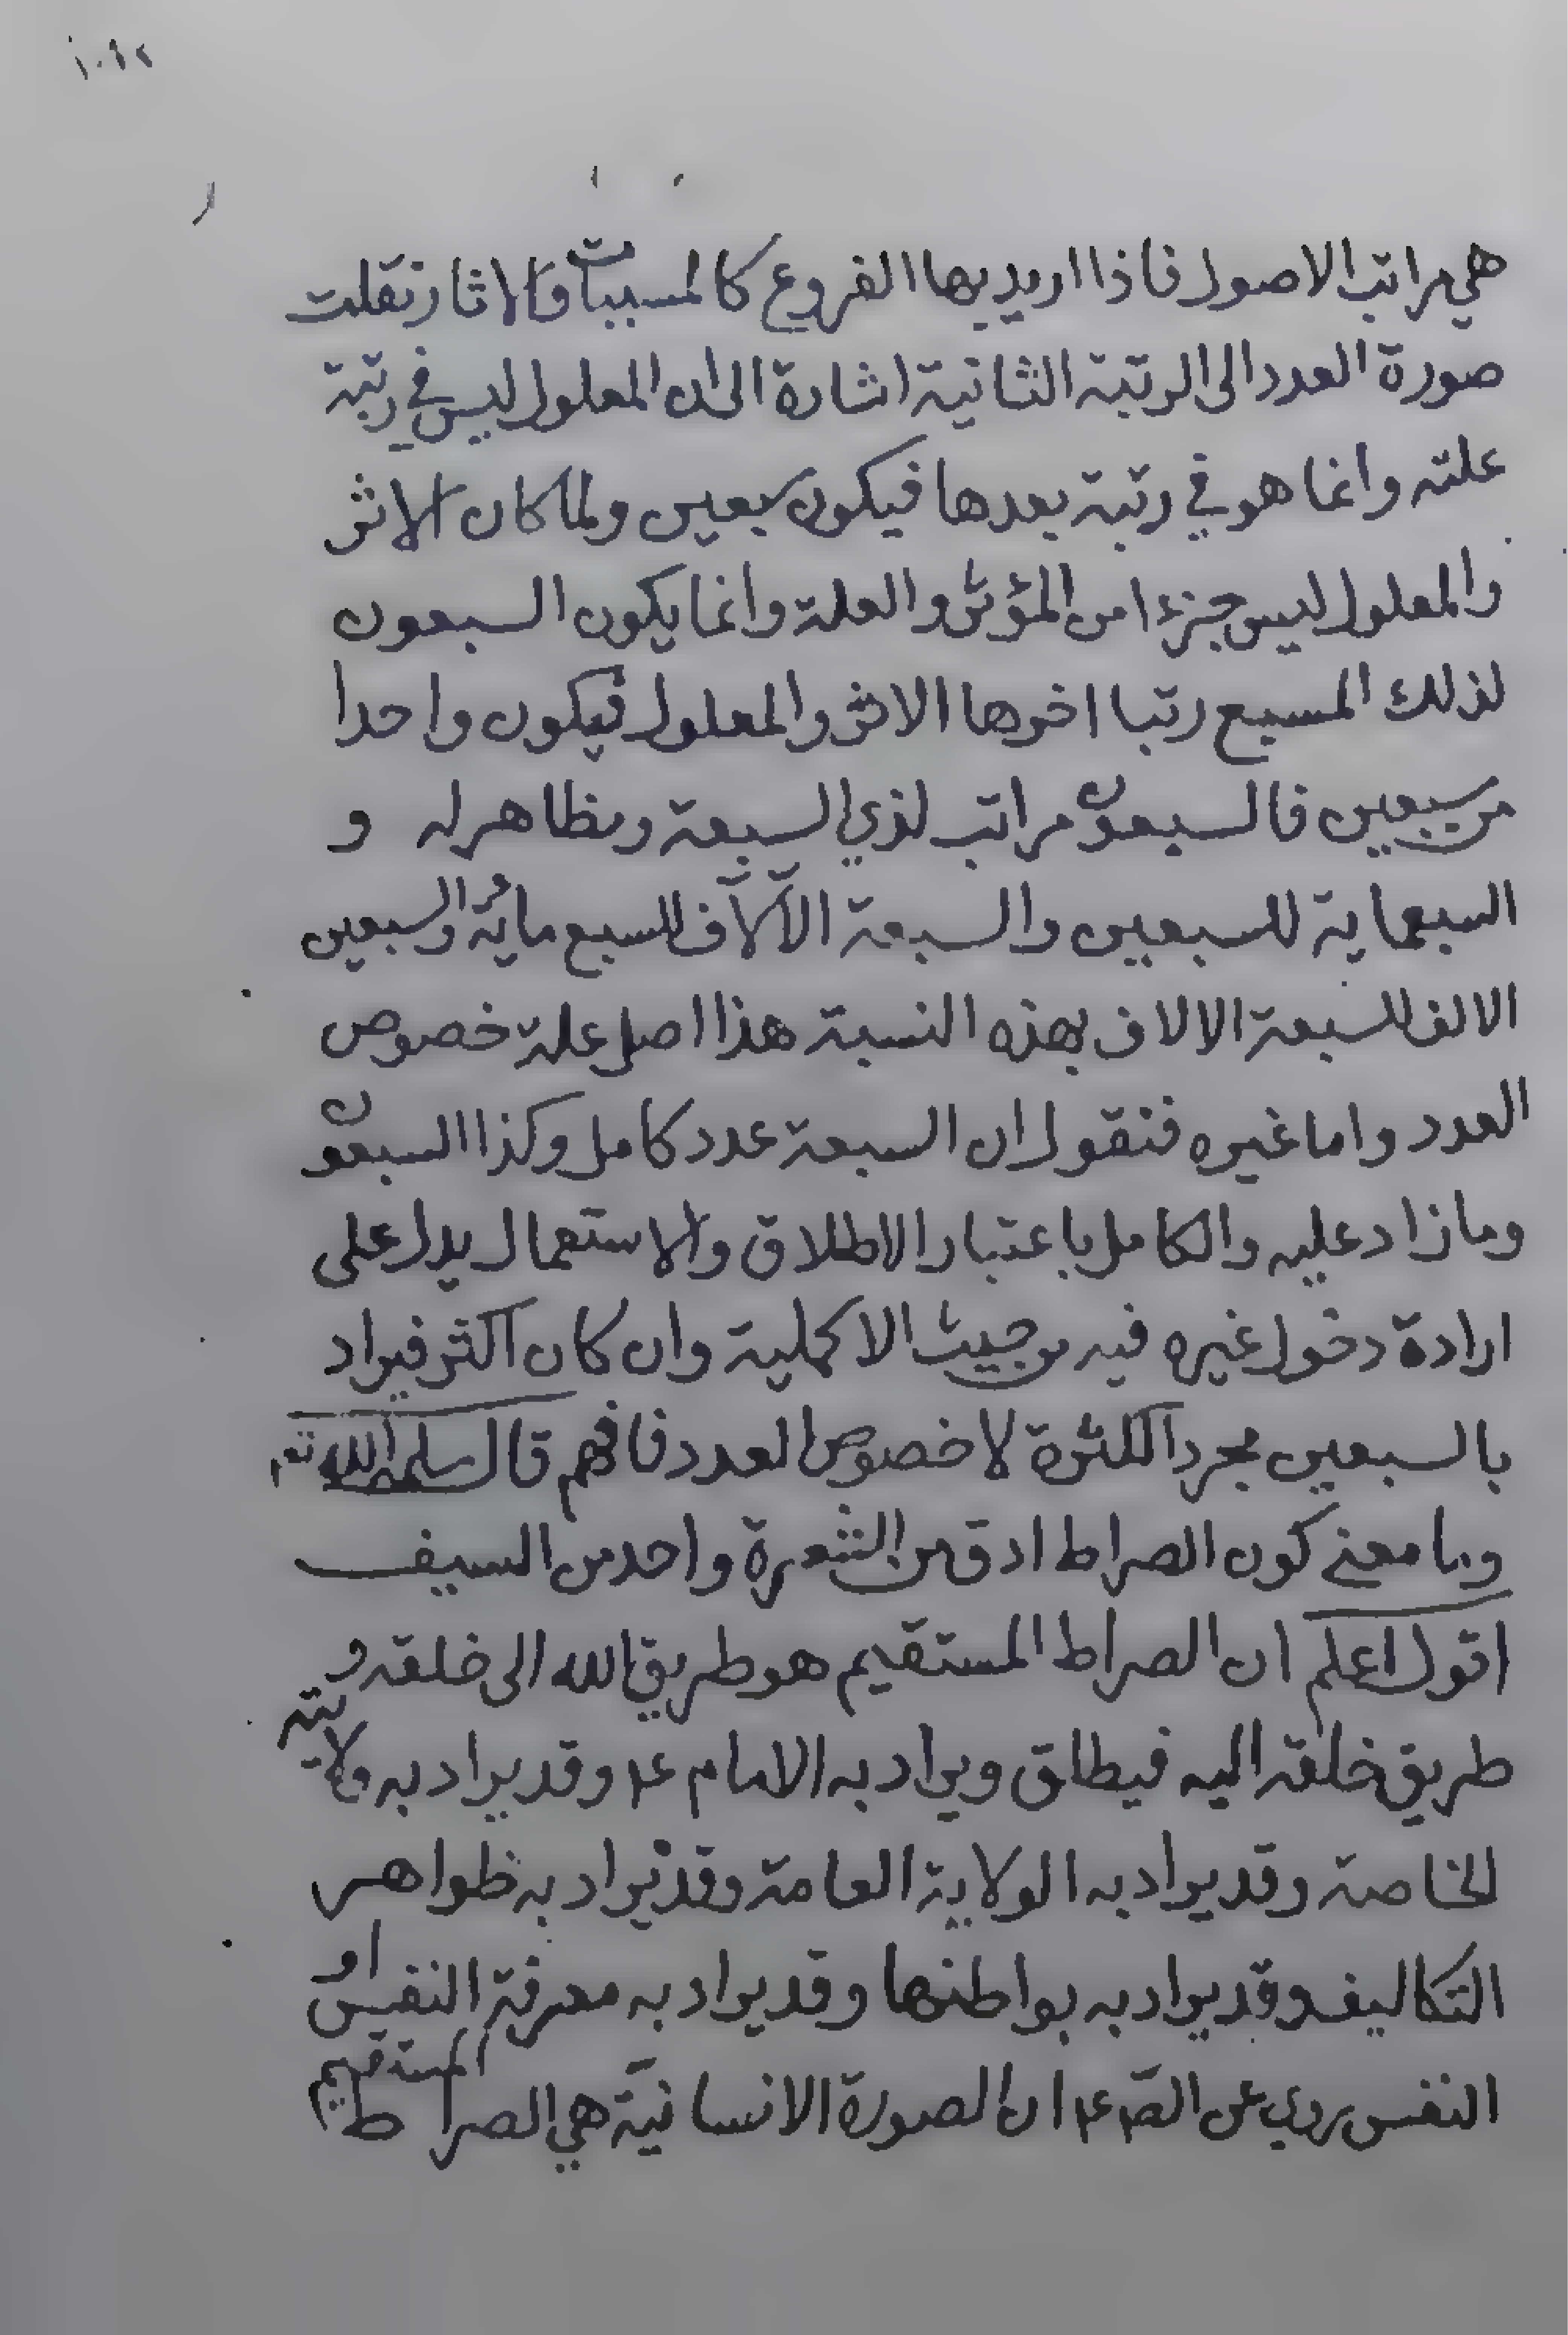 هي مراتب الاصول فاذا اريد بها الفروع كالمسببات والاثار نقلت
صورة العدد الى الرتبة الثانية اشارة الى ان المعلول ليس في رتبة
علته وانما هو في رتبة بعدها فيكون سبعين ولما كان الاثر
والمعلول ليس جزءا من المؤثر والعلة وانما يكون السبعون
لذلك المسبع رتبا اخرها الاثر والمعلول فيكون واحدا
من سبعين فالسبعون مراتب لذي السبعة ومظاهر له و
السبعماية للسبعين والسبعة الآلاف للسبع مائة والسبعين
الالف للسبعة الالاف بهذه النسبة هذا اصل علة خصوص
العدد واما غيره فنقول ان السبعة عدد كامل وكذا السبعون
وما زاد عليه والكامل باعتبار الاطلاق والاستعمال يدل على
ارادة دخول غيره فيه من حيث الاكملية وان كان اكثر فيراد
بالسبعين مجرد الكثرة لا خصوص العدد فافهم قال سلمه الله تعـ
وما معنى كون الصراط ادق من الشعرة واحد من السيف
اقول اعلم ان الصراط المستقيم هو طريق الله الى خلقه و
طريق خلقه اليه فيطلق ويراد به الامام ع وقد يراد به ولايته
الخاصة وقد يراد به الولاية العامة وقد يراد به ظواهر
التكاليف وقد يراد به بواطنها وقد يراد به معرفة النفس او
النفس روي عن الصّ ع ان الصورة الانسانية هي الصراط المستقيم